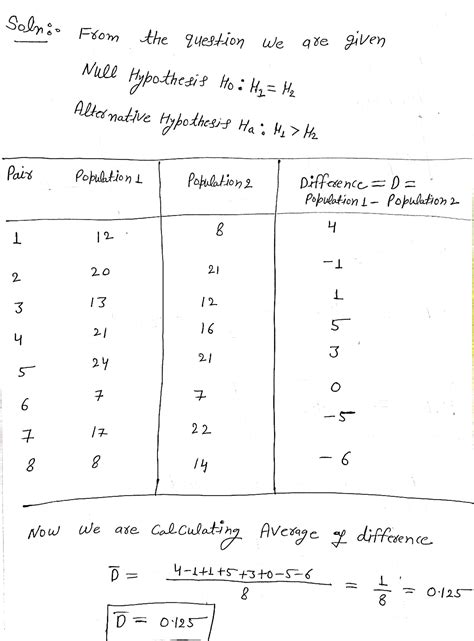 Soln:-
From the question we are given
Null Hypothesis Ho : H1 = H2
Alternative Hypothesis Ha : H1 > H2
Pair Population 1 Population 2 Difference = D =
Population 1 - Population 2
1 12 8 4
2 20 21 -1
3 13 12 1
4 21 16 5
5 24 21 3
6 7 7 0
7 17 22 -5
8 8 14 -6
Now we are Calculating Average of difference
D̅ = 4-1+1+5+3+0-5-6 / 8 = 1/8 = 0.125
D̅ = 0.125